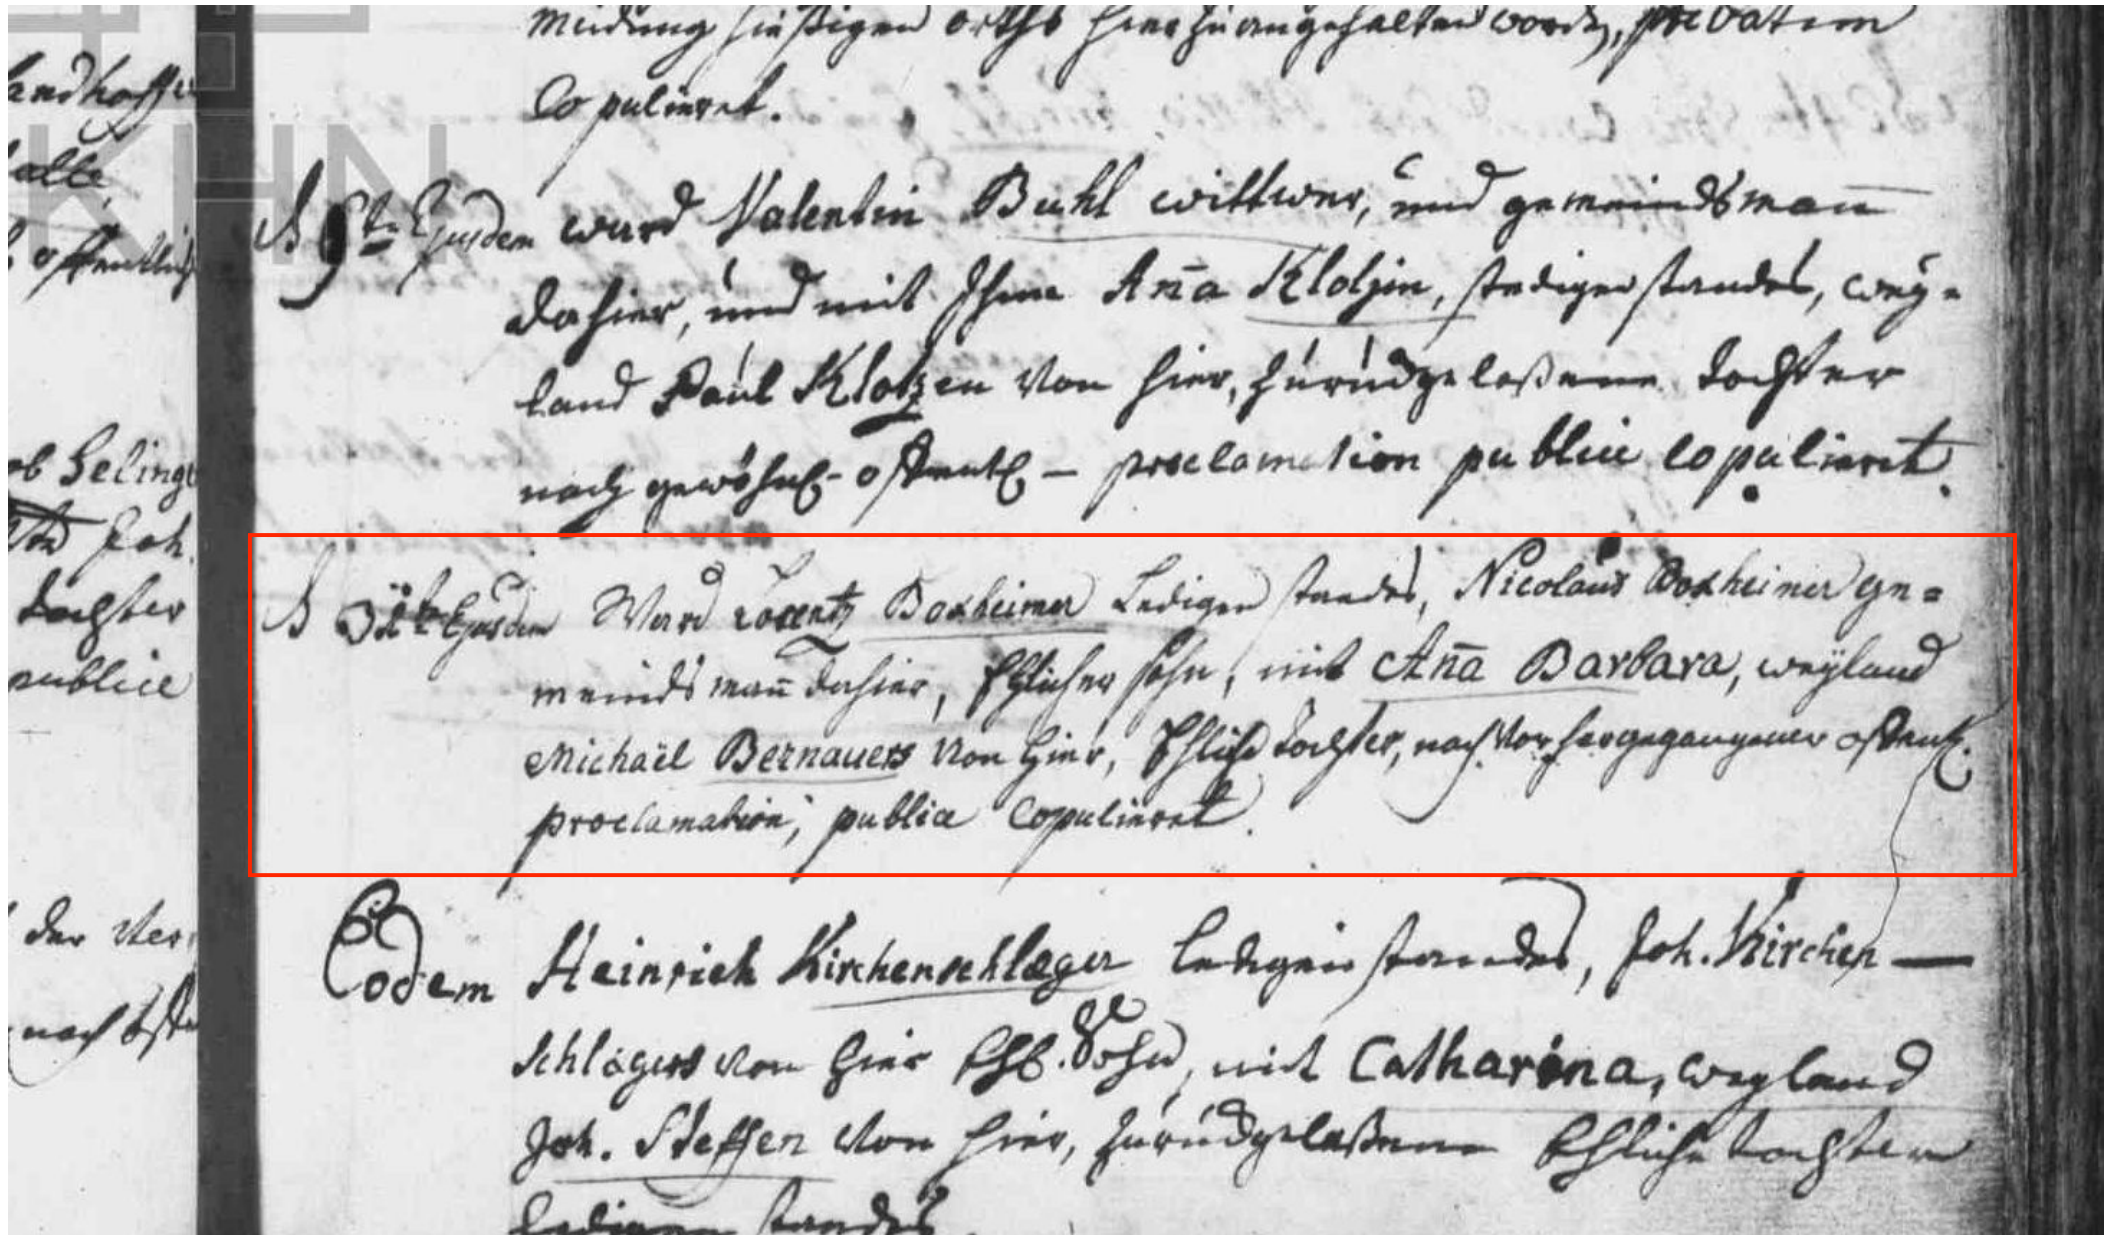 Meidung hießigen orths hierzu angehalten worden, privatim
Copulieret.
Ejusdem ward Valentin Buhl wittwer, und gemeindsmann
dahier, und mit Ihme Anna Klotzin, ledigen standes, wey-
land Paul Klotzen von hier, zurückgelaßene tochter
nach gewöhnl. öffentl. proclamation publice copulieret.
Ejusdem Ward Lorentz Boxheimer Ledigen standes, Nicolaus Boxheimer ge=
meindsmann dahier, Ehlicher sohn, mit Anna Barbara, weyland
Michaël Bernauers von hier, Ehliche tochter, nach vorhergegangener öffentl.
proclamation, publice copulieret.
Eodem Heinrich Kirchenschlæger ledigen standes, Joh. Kirchen—
schlägers von hier Ehl. Sohn, mit Catharina, weyland
Joh. Steffen von hier, zurückgelaßene Ehliche tochter
ledigen standes
öffentlich
tochter
publice
nach
KHN